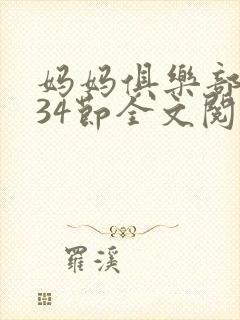 妈妈俱樂部
34節全文閱
羅溪